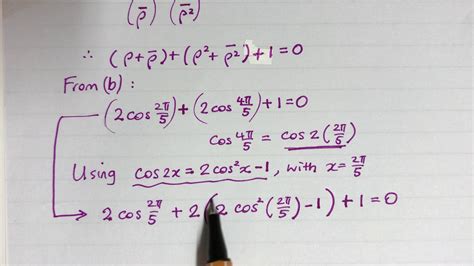 (ρ̄) (ρ̄²)
∴ (ρ+ρ̄)+(ρ²+ρ̄²)+1=0
From (b):
(2cos 2π/5)+(2cos 4π/5)+1=0
cos 4π/5 = cos 2(2π/5)
Using cos2x=2cos²x-1, with x=2π/5
→ 2cos 2π/5 + 2(2cos²(2π/5)-1)+1=0